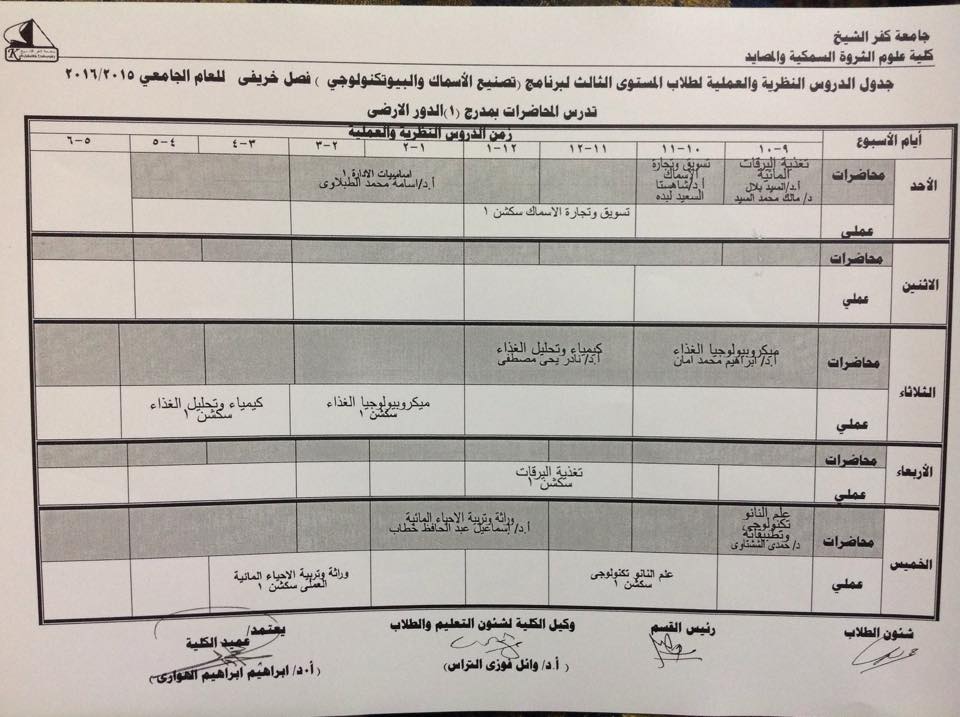 جامعة كفر الشيخ
كلية علوم الثروة السمكية والمصايد
Kafrelsheikh University
جدول الدروس النظرية والعملية لطلاب المستوى الثالث لبرنامج (تصنيع الأسماك والبيوتكنولوجي ) فصل خريفى للعام الجامعي ٢٠١٦/٢٠١٥
تدرس المحاضرات بمدرج (١)الدور الارضى
أيام الأسبوع
زمن الدروس النظرية والعملية
١٠-٩
١١-١٠
١٢-١١
١-١٢
٢-١
٣-٢
٤-٣
٥-٤
٦-٥
الأحد
محاضرات
تغذية اليرقات
المائية
أ.د/السيد بلال
د/ مالك محمد السيد
تسويق وتجارة
الاسماك
أ.د/شاهستا
السعيد لبده
اساسيات الادارة ١
أ.د/اسامة محمد الطبلاوى
عملى
تسويق وتجارة الاسماك سكشن ١
الاثنين
محاضرات
عملي
الثلاثاء
محاضرات
ميكروبيولوجيا الغذاء
أ.د/ ابراهيم محمد امان
كيمياء وتحليل الغذاء
أ.د/ نادر يحى مصطفى
عملي
ميكروبيولوجيا الغذاء
سكشن ١
كيمياء وتحليل الغذاء
سكشن ١
الأربعاء
محاضرات
عملي
تغذية اليرقات
سكشن ١
الخميس
محاضرات
علم النانو
تكنولوجى
وتطبيقاته
د/ حمدى الششتاوى
وراثة وتربية الاحياء المائية
أ.د/ إسماعيل عبد الحافظ خطاب
عملي
علم النانو تكنولوجى
سكشن ١
وراثة وتربية الاحياء المائية
العملى سكشن ١
شئون الطلاب
رئيس القسم
وكيل الكلية لشئون التعليم والطلاب
(أ.د/ وائل فوزى التراس)
يعتمد/
عميد الكلية
(أ.د/ ابراهيم ابراهيم الهوارى)